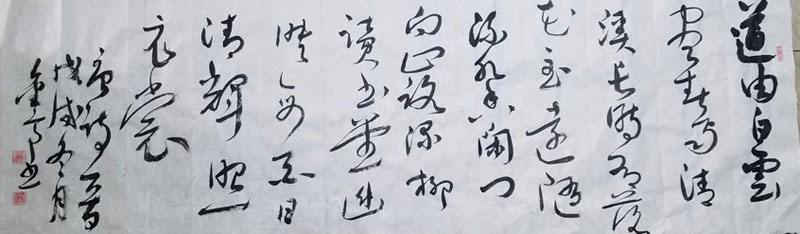 道由白雲
盡春与清
溪長時有落
花至遠随
流水香闲门
向山路深柳
讀書堂幽
映每白日
清輝照
衣裳
唐詩一首
戊戌冬月
书